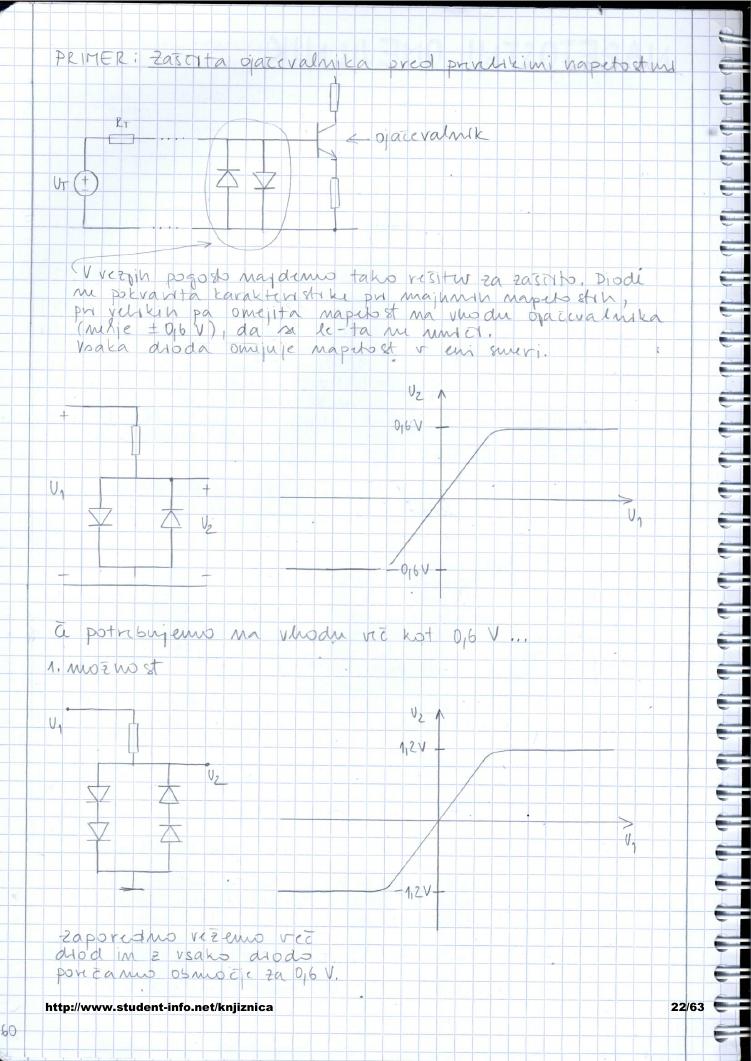 PRIMER: Zaščita ojačevalnika pred prevelikimi napetostmi
RT
ojačevalnik
UT
V vezjih pogosto najdemo tako rešitev za zaščito. Diodi
ne pokvarita karakteristike pri majhnih napetostih,
pri velikih pa omejita napetost na vhodu ojačevalnika
(nekje ± 0,6 V), da se le-ta ne uniči.
Vsaka dioda omejuje napetost v eni smeri.
U2
0,6 V
+
U1
+
U2
U1
-0,6 V
-
-
Če potrebujemo na vhodu več kot 0,6 V ...
1. možnost
U1
U2
1,2 V
U2
U1
-1,2 V
Zaporedno vežemo več
diod in z vsako diodo
povečamo območje za 0,6 V.
http://www.student-info.net/knjiznica
22/63
60